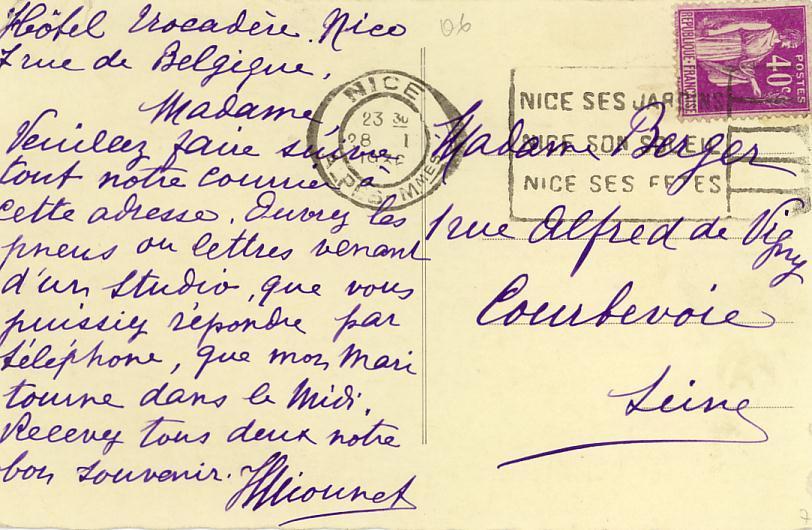 Hôtel Trocadère. Nice
7 rue de Belgique.
Madame,
Veuillez faire suivre
tout notre courrier à
cette adresse. Ouvrez les
pneus ou lettres venant
d'un studio, que vous
puissiez répondre par
téléphone, que mon Mari
tourne dans le Midi.
Recevez tous deux notre
bon souvenir.
06
NICE
23 30
28 I
ALPES MMES
NICE SES JARDINS
NICE SON SOLEIL
NICE SES FETES
REPUBLIQUE FRANÇAISE
POSTES
40c
Madame Berger
1 rue Alfred de Vigny
Courbevoie
Seine